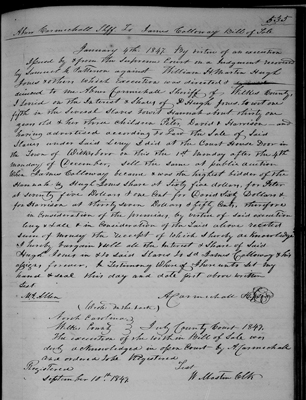 535
Abner Carmichall Shff To James Calloway Bill of Sale
January 4th 1847. By virtue of an execution
Issued by & from the Supreme Court on a Judgment recovered
by & Patterson against William H. Martin Hugh
Jones & others which execution was directed &
to me Abner Carmichall Sheriff of Wilkes County
I levied on the Interest & Share of Hugh Jones to wit one
fifth in the several Slaves to wit Hannah about thirty one
years old & her three children Peter David & Harrison and
having advertised according to Law the Sale of said
Slaves under said Levy I did at the Court House Door in
the Town of Wilkesboro on this the 1st Monday after the 4th
Monday of December, sell the same at public auction
when James Calloway became & was the highest bidder of the
Hannah by Hugh Jones share at Sixty five dollars, for Peter
at seventy four Dollars & for David at Sixty Dollars
for Harrison at thirty seven Dollars & fifty Cents, therefore
in consideration of the premises, by virtue of said execution
levy & sale & in consideration of the said above recited
sum of money the receipt of which I hereby acknowledge
I hereby bargain & sell all the interest & share of said
Hugh Jones in & to said Slaves to sd James Calloway & his
forever. In Testimony whereof I hereunto set my
hand & seal this day and date just above written
Test
A Carmichall Shff
North Carolina
Wilkes County July County Court 1847.
The execution of the within Bill of Sale was
duly acknowledged in open Court by A Carmichall
and ordered to be Registered
Registered Test
September 10th 1847 W. Mastin Clk